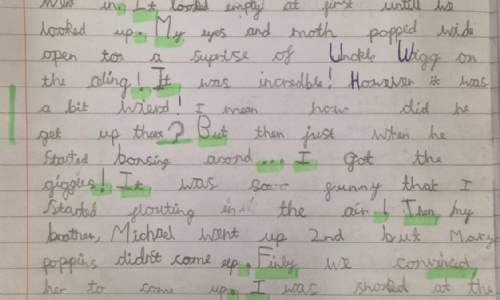 in. It looked empty at first until we
looked up. My eyes and moth popped wide
open too a suprise of Unckle Wigg on
the celing! It was incredble! However it was
a bit wierd! I mean how did he
get up there? But then just when he
started bonsing arond... I got the
giggles! It was soo funny that I
Started flouting in the air! Then my
brother, Michael went up 2nd but Mary
poppins didn't come up. Finly we convinced
her to come up. I was shoked at the